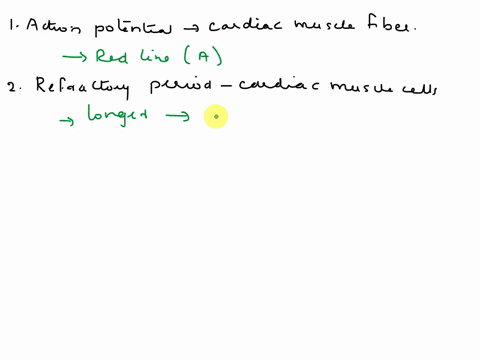 1. Action potential → cardiac muscle fiber.
→ Red line (A)
2. Refractory period - cardiac muscle cells
→ longer →